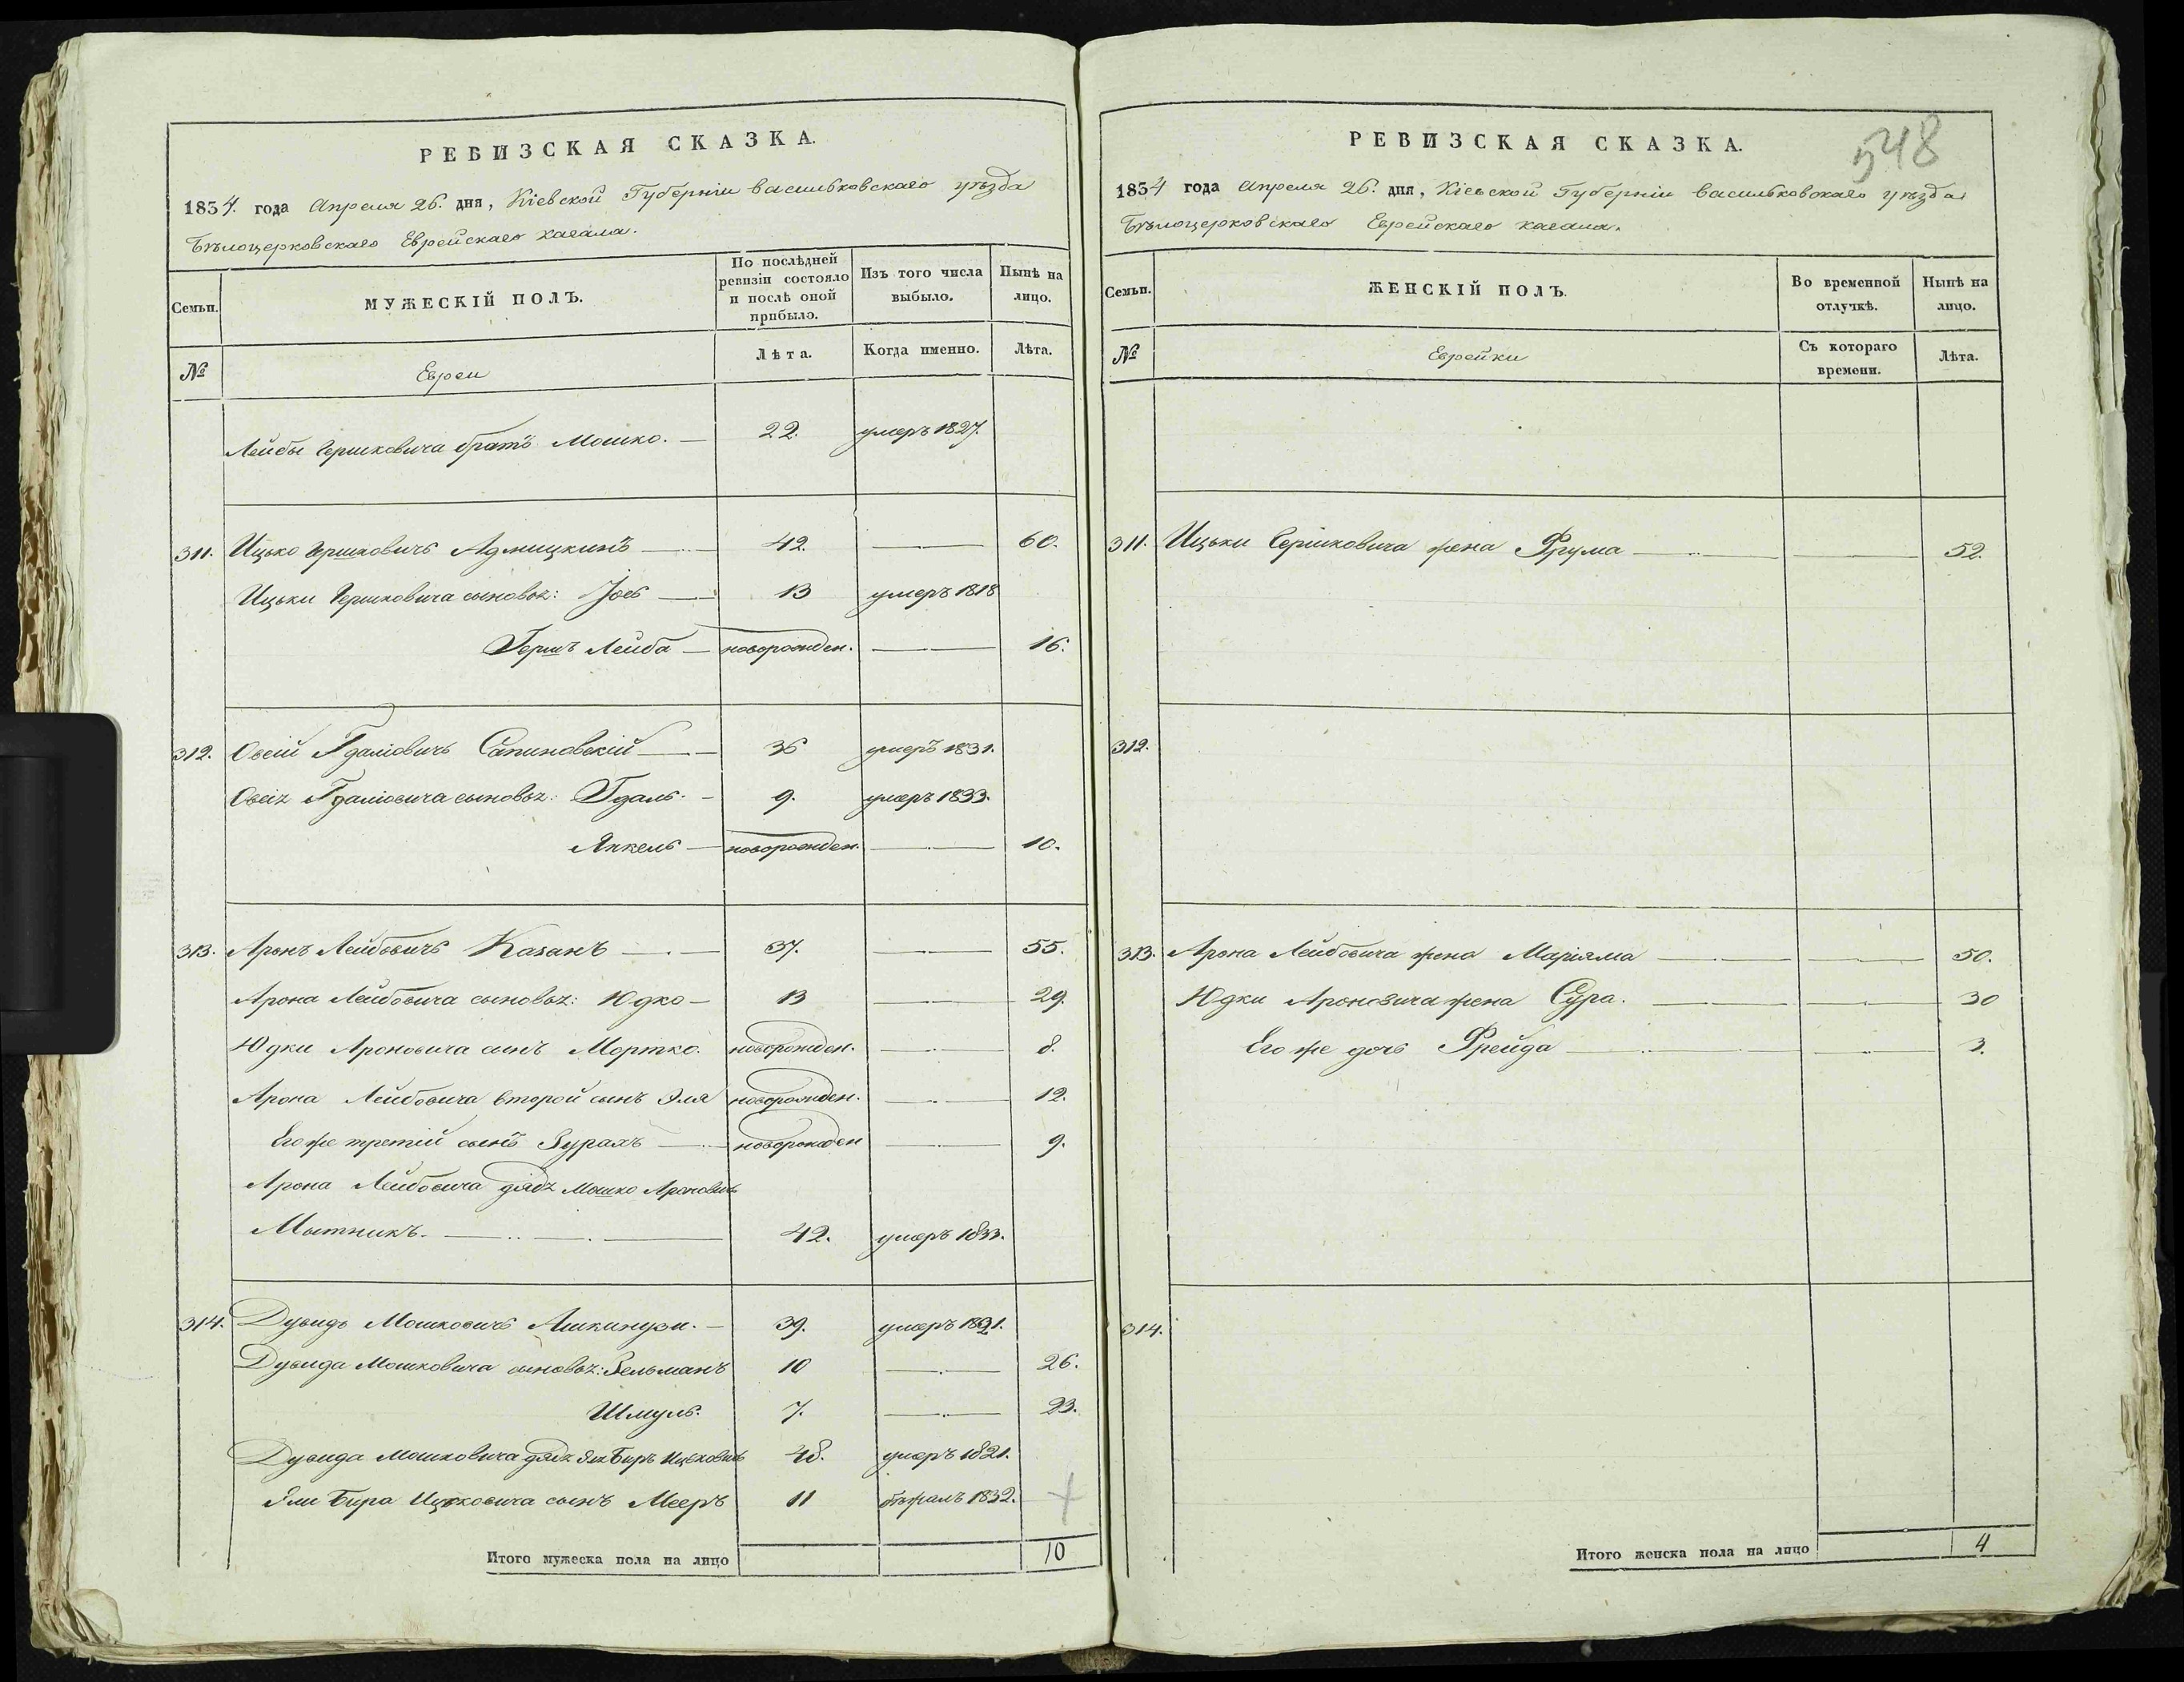 РЕВИЗСКАЯ СКАЗКА.
1834. года Апреля 26. дня, Кіевской Губерніи васильковскаго уѣзда
Бѣлоцерковскаго Еврейскаго кагала.
Семьи. МУЖЕСКІЙ ПОЛЪ. По послѣдней ревизіи состояло и послѣ оной прибыло. Изъ того числа выбыло. Нынѣ на лицо.
№ Евреи Лѣта. Когда именно. Лѣта.
Лейбы Гершковича братъ Мошко. 22. умеръ 1827.
311. Ицько Гершковичъ 42. 60.
Ицьки Гершковича сыновья: Іось 13 умеръ 1818
Гершъ Лейба новорожден. 16.
312. Овсій Гдаліовичъ Сапиновскій 36 умеръ 1831.
Овсія Гдаліовича сыновья: Гдаль. 9. умеръ 1833.
Янкель новорожден. 10.
313. Аронъ Лейбовичъ Казанъ 37. 55.
Арона Лейбовича сыновья: Юдко 13 29.
Юдки Ароновича сынъ Мортко. новорожден. 8.
Арона Лейбовича второй сынъ Эля новорожден. 12.
Его же третій сынъ Зурахъ новорожден 9.
Арона Лейбовича дядя Мошко Ароновичъ
Мытникъ. 42. умеръ 1833.
314. Дувидъ Мошковичъ Ашкинузи. 39. умеръ 1831.
Дувида Мошковича сыновья: Зельманъ 10 26.
Шмуль. 7. 23.
Дувида Мошковича дядя Эля Биръ Ицковичъ 48. умеръ 1821.
Эли Бира Ицковича сынъ Мееръ 11 бѣжалъ 1832.
Итого мужеска пола на лицо 10
РЕВИЗСКАЯ СКАЗКА.
548
1834 года Апреля 26. дня, Кіевской Губерніи васильковскаго уѣзда
Бѣлоцерковскаго Еврейскаго кагала.
Семьи. ЖЕНСКІЙ ПОЛЪ. Во временной отлучкѣ. Нынѣ на лицо.
№ Еврейки Съ котораго времени. Лѣта.
311. Ицьки Гершковича жена Фрума 52.
312.
313. Арона Лейбовича жена Маріяма 50.
Юдки Ароновича жена Сура. 30
Его же дочь Фрейда 3.
314.
Итого женска пола на лицо 4